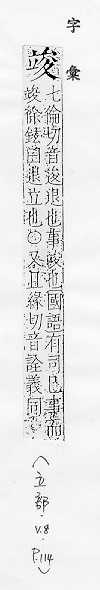 字彙
竣
七倫切音逡退也事竣也國語有司已事而
竣徐鉉曰退立也○又且緣切音詮義同
(立部.V.8.P.114)